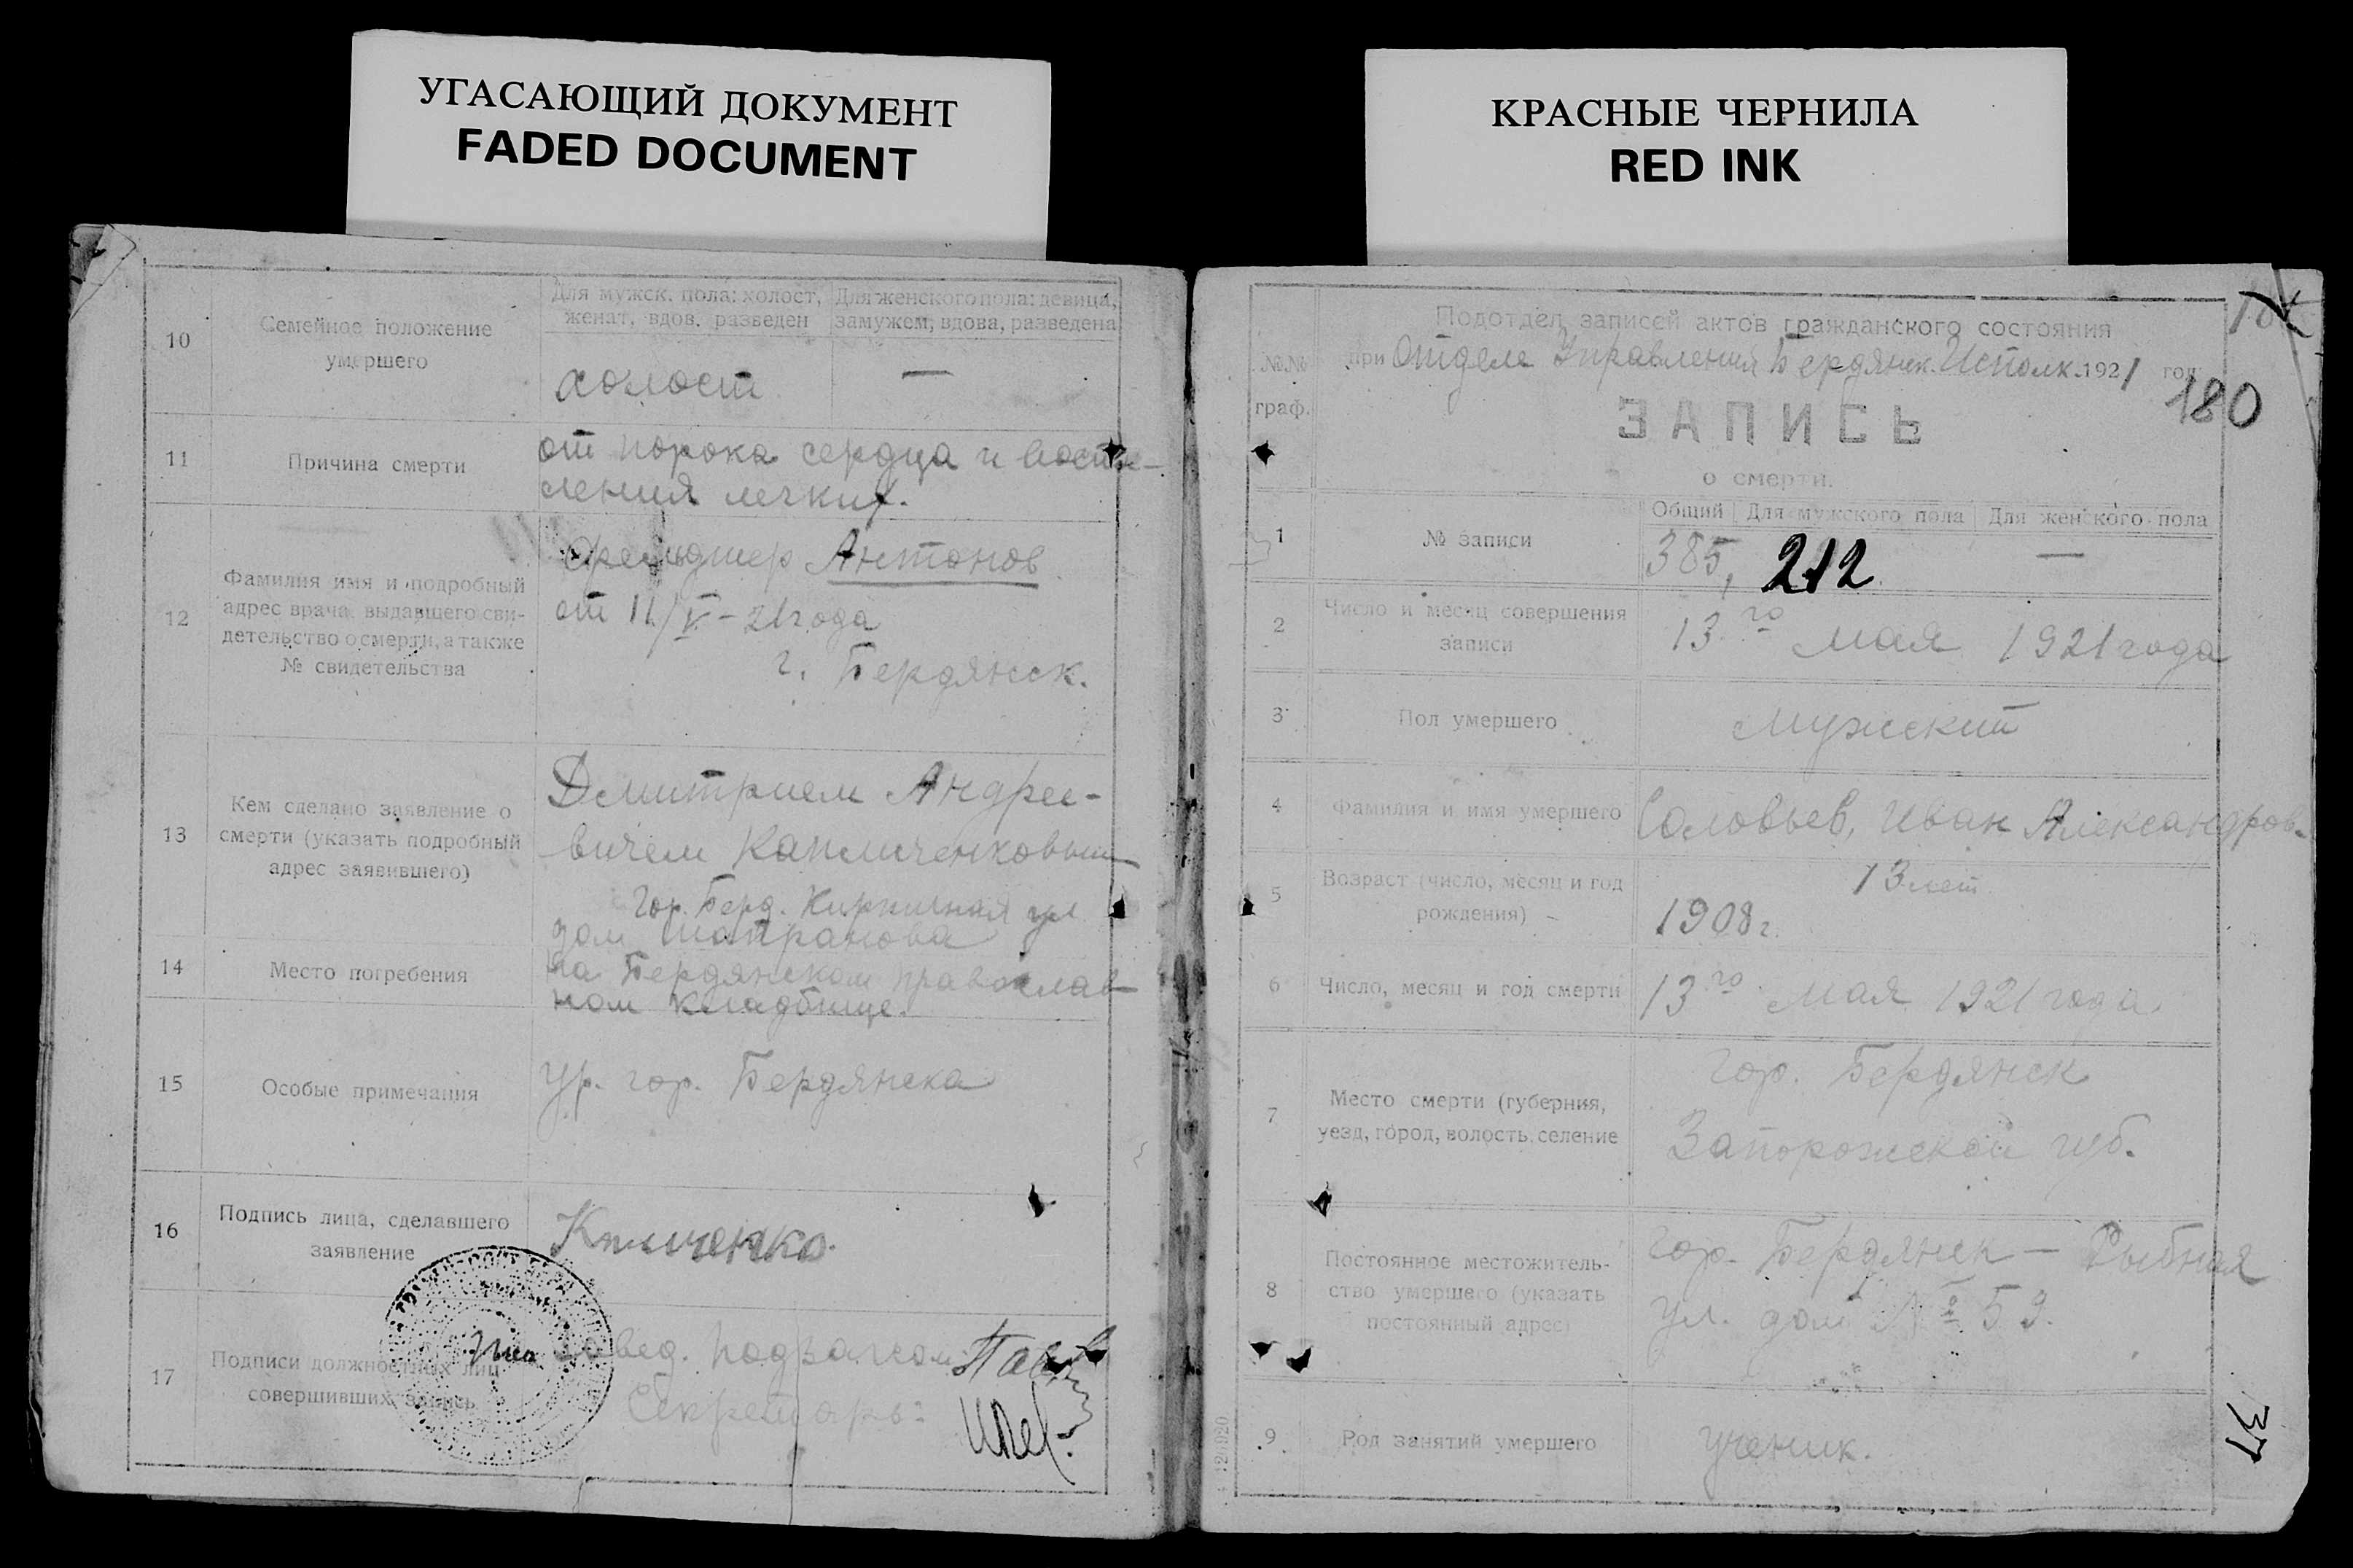 УГАСАЮЩИЙ ДОКУМЕНТ
FADED DOCUMENT
КРАСНЫЕ ЧЕРНИЛА
RED INK
10
Семейное положение
умершего
Для мужск. пола: холост,
женат, вдов, разведен
Для женского пола: девица,
замужем, вдова, разведена
холост
—
11
Причина смерти
от порока сердца и воспа-
ления легких.
12
Фамилия имя и подробный
адрес врача, выдавшего сви-
детельство о смерти, а также
№ свидетельства
Фельдшер Антонов
от 11/V - 21 года
г. Бердянск.
13
Кем сделано заявление о
смерти (указать подробный
адрес заявившего)
Дмитрием Андрее-
вичем
Гор. Берд. Кирпичная ул
дом Шапранова
14
Место погребения
на Бердянском православ-
ном кладбище.
15
Особые примечания
ур. гор. Бердянска
16
Подпись лица, сделавшего
заявление
17
Подписи должностных лиц
совершивших запись
Завед. подзагсом
Секретарь:
Подотдел записей актов гражданского состояния
№№
граф.
при Отделе Управления Бердянск. Исполк. 1921 год
180
ЗАПИСЬ
о смерти.
1
№ записи
Общий
Для мужского пола
Для женского пола
385,
212
—
2
Число и месяц совершения
записи
13го мая 1921 года
3
Пол умершего
Мужский
4
Фамилия и имя умершего
Соловьев, Иван Александров.
5
Возраст (число, месяц и год
рождения)
13 лет
1908 г.
6
Число, месяц и год смерти
13го мая 1921 года.
7
Место смерти (губерния,
уезд, город, волость, селение
гор. Бердянск
Запорожской губ.
8
Постоянное местожитель-
ство умершего (указать
постоянный адрес)
гор. Бердянск — Рыбная
ул. дом № 59.
9
Род занятий умершего
ученик.
37